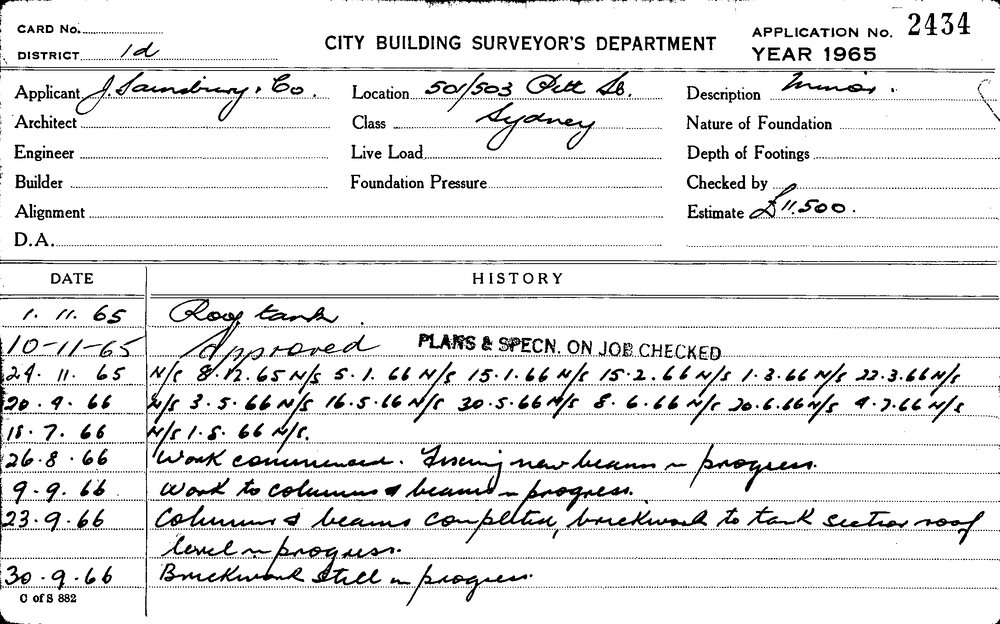 CARD No. APPLICATION No. 2434
DISTRICT 1d CITY BUILDING SURVEYOR'S DEPARTMENT YEAR 1965
Applicant J. Sainsbury & Co. Location 501/503 Pitt St. Description Minor.
Architect Class Sydney Nature of Foundation
Engineer Live Load Depth of Footings
Builder Foundation Pressure Checked by
Alignment Estimate £11.500.
D.A.
DATE HISTORY
1. 11. 65 Roof tank
10-11-65 Approved PLANS & SPECN. ON JOB CHECKED
24. 11. 65 N/S 8.12.65 N/S 5.1.66 N/S 15.1.66 N/S 15.2.66 N/S 1.3.66 N/S 22.3.66 N/S
20.4.66 N/S 3.5.66 N/S 16.5.66 N/S 30.5.66 N/S 8.6.66 N/S 20.6.66 N/S 4.7.66 N/S
18.7.66 N/S 1.8.66 N/S.
26.8.66 Work commenced. new beams in progress.
9.9.66 Work to columns & beams in progress.
23.9.66 Columns & beams completed, brickwork to tank section roof
level in progress.
30.9.66 Brickwork still in progress.
C of S 882